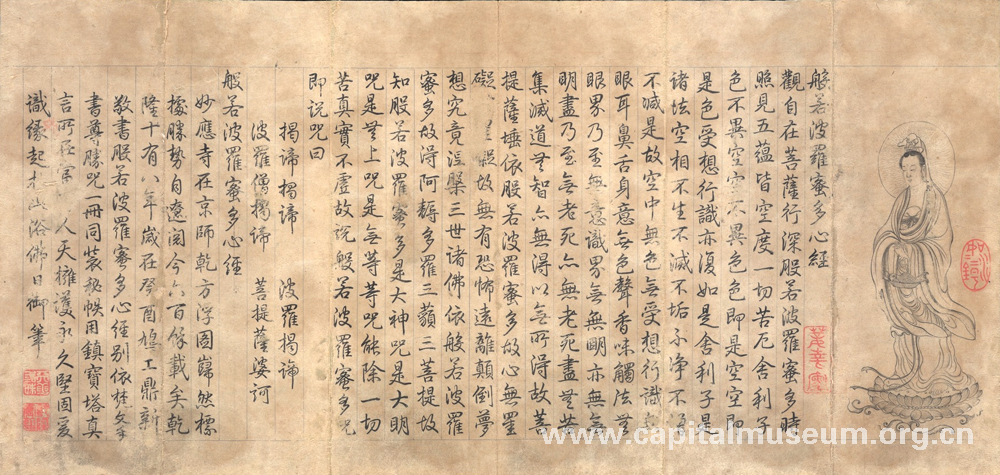 般若波羅蜜多心經
觀自在菩薩行深般若波羅蜜多時
照見五蘊皆空度一切苦厄舍利子
色不異空空不異色色即是空空即
是色受想行識亦復如是舍利子是
諸法空相不生不滅不垢不淨不
不滅是故空中無色無受想行識
眼耳鼻舌身意無色聲香味觸法無
眼界乃至無意識界無無明亦無無
明盡乃至無老死亦無老死盡無苦
集滅道無智亦無得以無所得故菩
提薩埵依般若波羅蜜多故心無罣
礙 礙故無有恐怖遠離顛倒夢
想究竟涅槃三世諸佛依般若波羅
蜜多故得阿耨多羅三藐三菩提故
知般若波羅蜜多是大神咒是大明
咒是無上咒是無等等咒能除一切
苦真實不虛故說般若波羅蜜多咒
即說咒曰
揭諦揭諦 波羅揭諦
波羅僧揭諦 菩提薩婆訶
般若波羅蜜多心經
妙應寺在京師乾方浮圖巋然標
據勝勢自遼閱今六百餘載矣乾
隆十有八年歲在癸酉鳩工鼎新
敬書般若波羅蜜多心經別依梵文
書尊勝咒一冊同裝秘帙用鎮寶塔真
言所在 人天擁護永久堅固爰
識緣起於此浴佛日御筆
www.capitalmuseum.org.cn